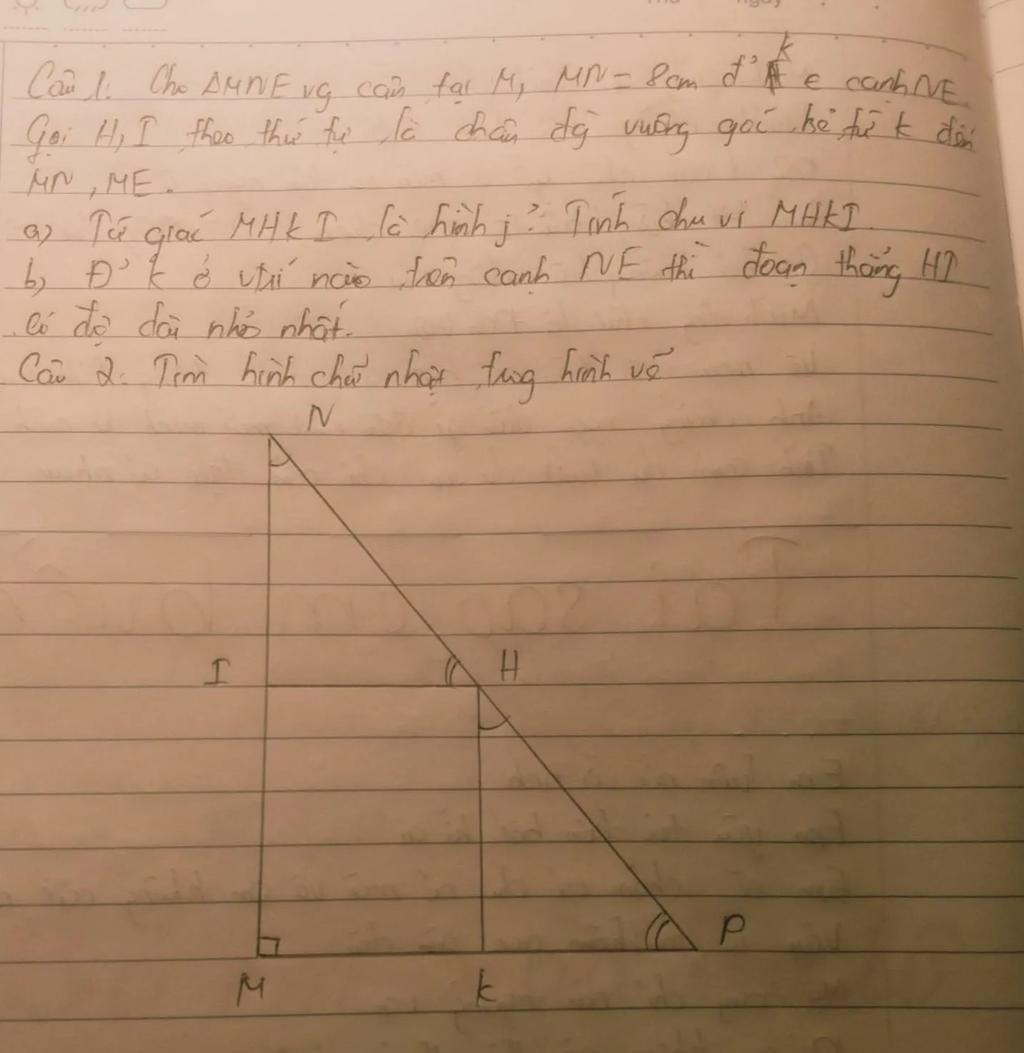 Câu 1. Cho ΔMNE vg cân tại M, MN = 8cm đ' k e cạnh NE.
Gọi H, I theo thứ tự là chân đg vuông góc kẻ từ k đến
MN, ME.
a) Tứ giác MHkI là hình j? Tính chu vi MHkI.
b) Đ' k ở vị trí nào trên cạnh NE thì đoạn thẳng HI
có độ dài nhỏ nhất.
Câu 2. Tìm hình chữ nhật trg hình vẽ
N
I H
P
M k